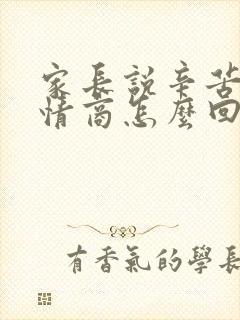 家長說辛苦
情商怎麼回
有香氣的學長